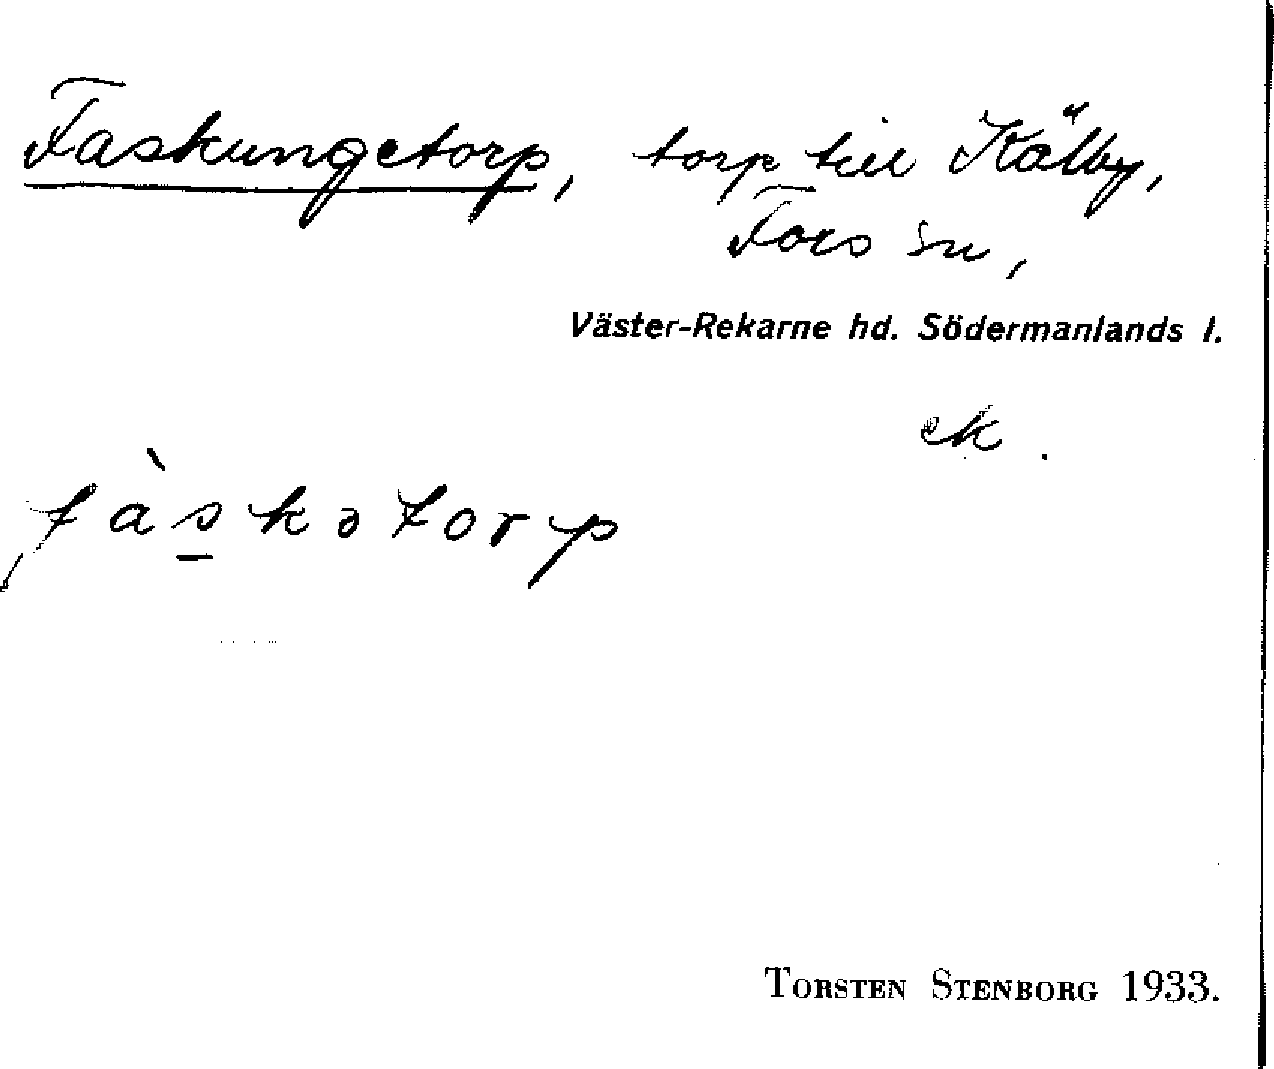 Faskungetorp, torp till Kälby,
Fors sn,
Väster-Rekarne hd. Södermanlands l.
ek.
fàskətorp
TORSTEN STENBORG 1933.